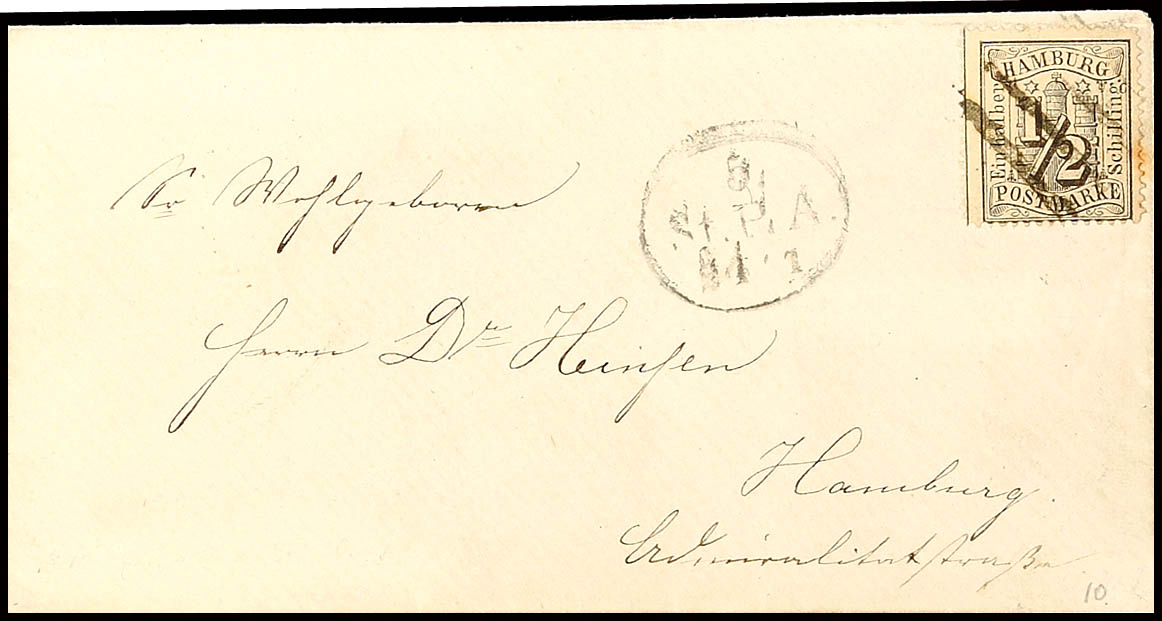 HAMBURG
Ein halber
Schilling
1/2
POSTMARKE
Sr Wohlgeboren
St. P. A.
Herrn Dr Heinsen
Hamburg.
Admiralitätstraße
10